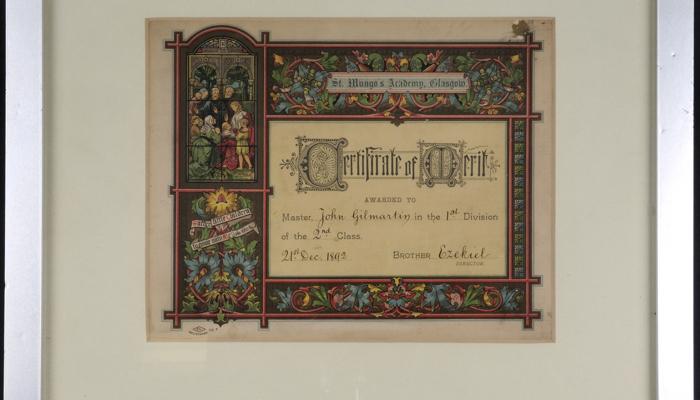 St. Mungo's Academy, Glasgow
Certificate of Merit
AWARDED TO
Master John Gilmartin in the 1st Division
of the 2nd Class.
21st Dec. 1892 BROTHER Ezekiel
DIRECTOR